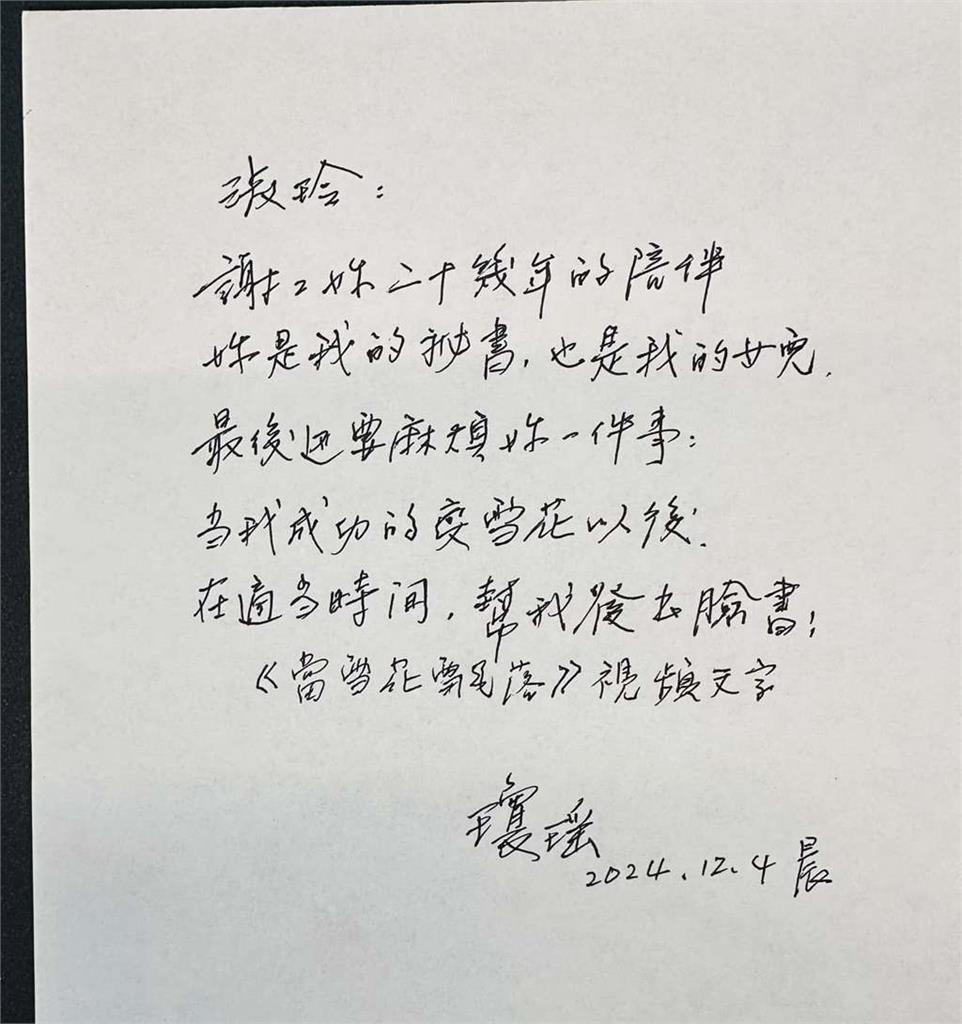 淑玲：
謝謝妳二十幾年的陪伴
妳是我的秘書，也是我的女兒.
最後还要麻煩妳一件事：
当我成功的变雪花以後.
在適当時间，幫我發去臉書；
《當雪花飄落》視頻文字
瓊瑤
2024.12.4 晨